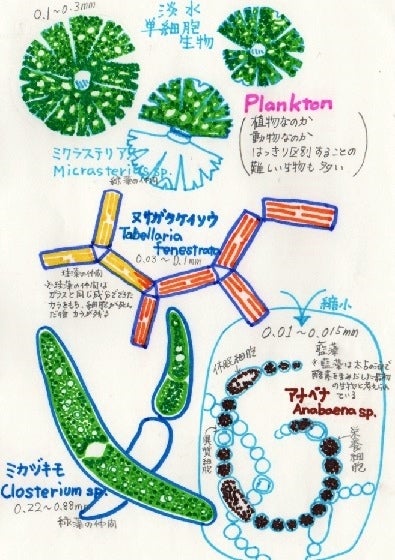 0.1~0.3mm
淡水
単細胞
生物
Plankton
植物なのか
動物なのか
はっきり区別することの
難しい生物も多い
ミクラステリアス
Micrasterias sp.
緑藻の仲間
ヌサガタケイソウ
Tabellaria
fenestrata
0.03~0.1mm
珪藻の仲間
※珪藻の仲間は
ガラスと同じ成分でできた
カラをもち、細胞が死ん
だ後 カラが残る
縮小
0.01~0.015mm
藍藻
休眠細胞
アナベナ
Anabaena sp.
異質細胞
栄養細胞
ミカヅキモ
Closterium sp.
0.22~0.88mm
緑藻の仲間